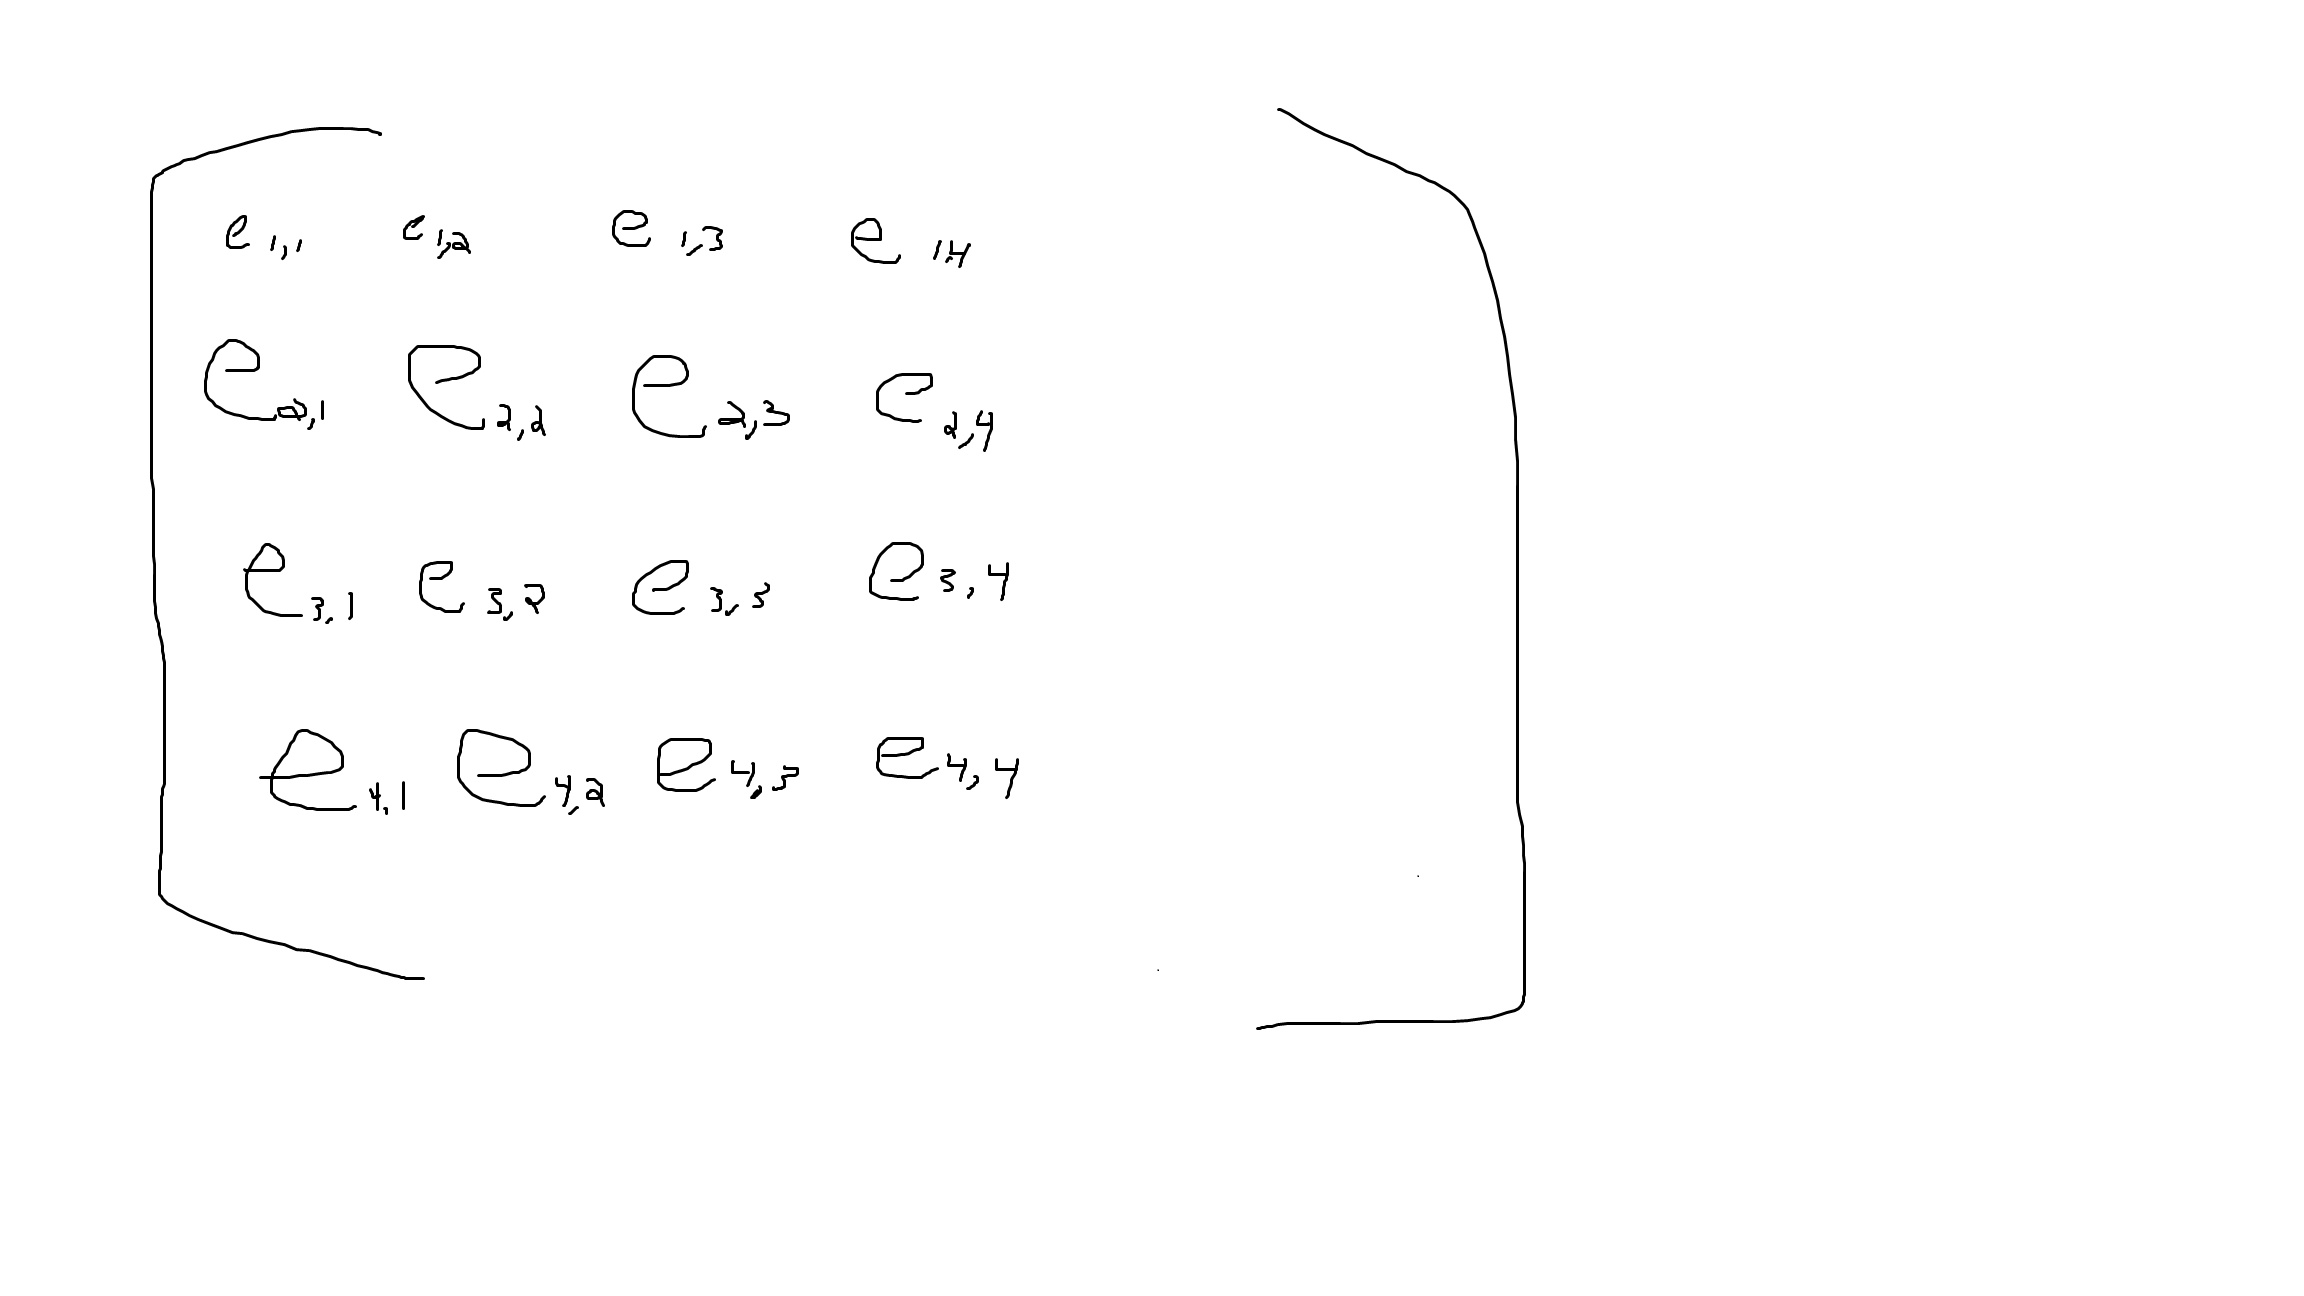 e1,1 e1,2 e1,3 e1,4
e2,1 e2,2 e2,3 e2,4
e3,1 e3,2 e3,3 e3,4
e4,1 e4,2 e4,3 e4,4